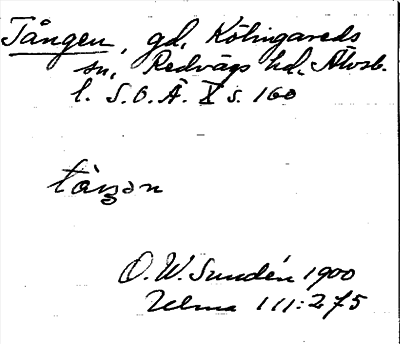 Tången, gd, Kölingareds
sn, Redvägs hd, Älvsb.
l. S.O.Ä. X s. 160
tåŋən
O. W. Sundén 1900
Ulma 111:275